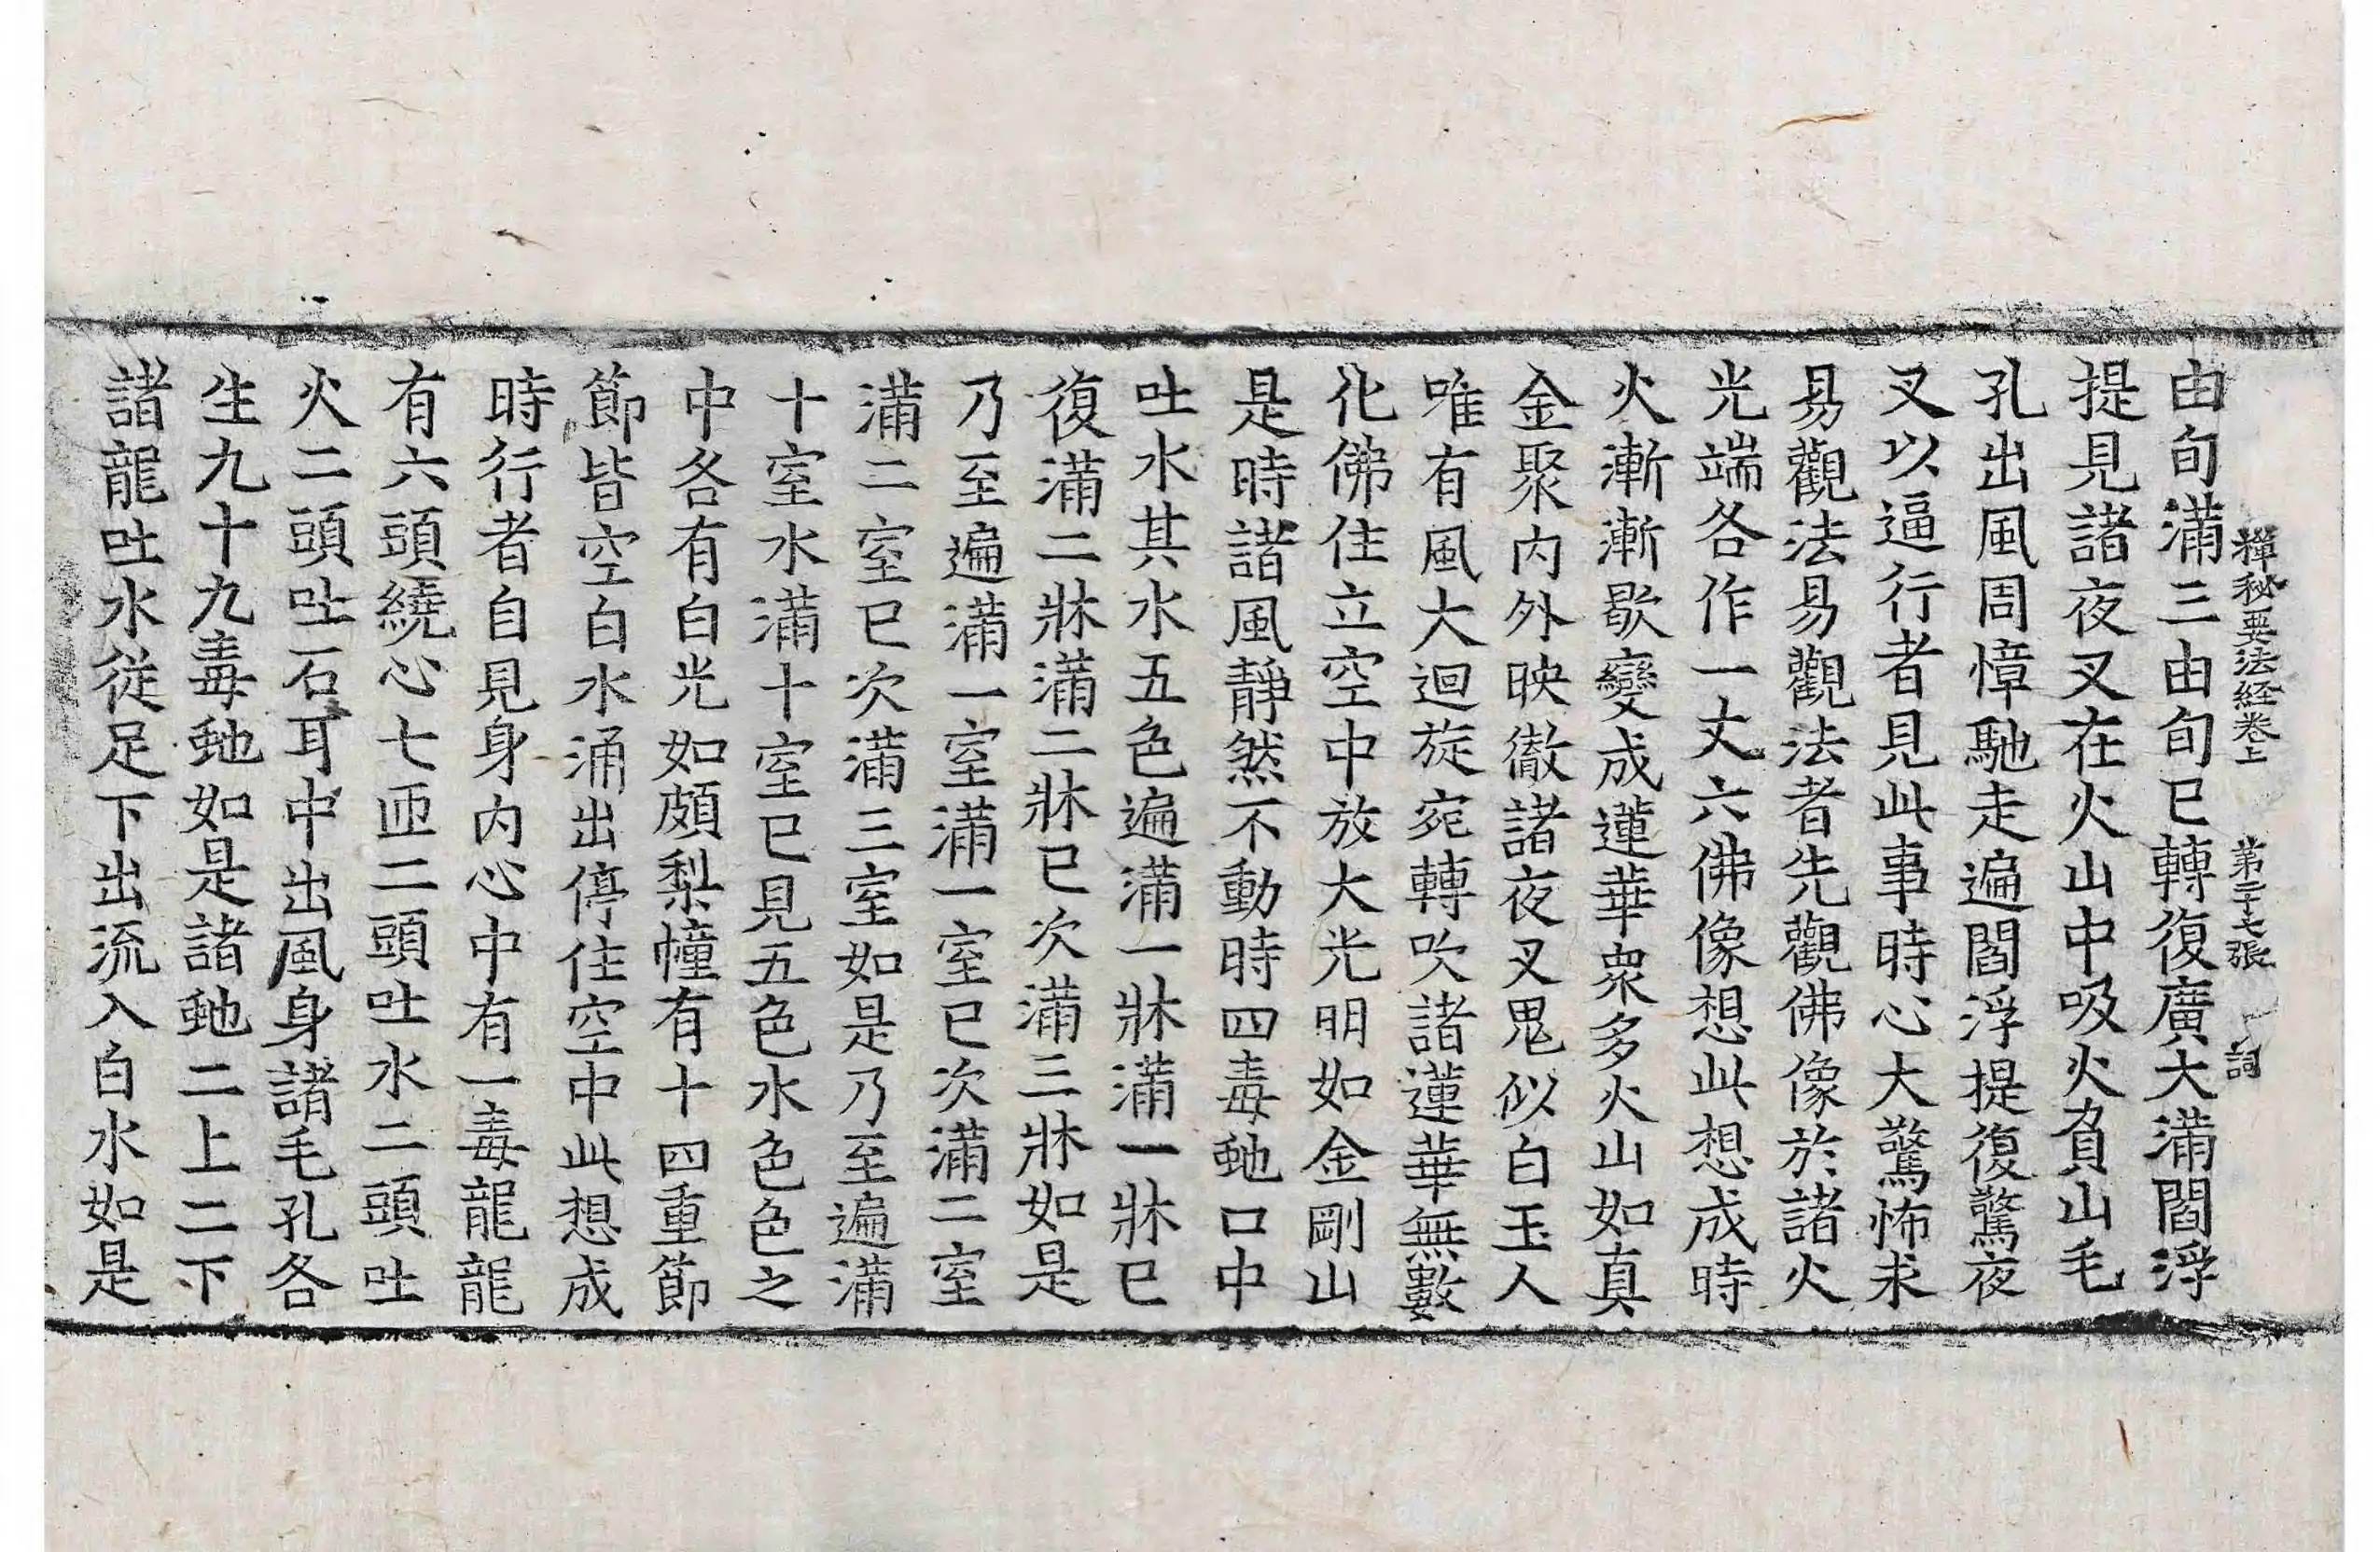 禪秘要法経卷上 第二十七張 詞
由旬滿三由旬已轉復廣大滿閻浮
提見諸夜叉在火山中吸火負山毛
孔出風周慞馳走遍閻浮提復驚夜
叉以逼行者見此事時心大驚怖求
易觀法易觀法者先觀佛像於諸火
光端各作一丈六佛像想此想成時
火漸漸歇變成蓮華衆多火山如真
金聚內外映徹諸夜叉鬼似白玉人
唯有風大迴旋宛轉吹諸蓮華無數
化佛住立空中放大光明如金剛山
是時諸風靜然不動時四毒虵口中
吐水其水五色遍滿一牀滿一牀已
復滿二牀滿二牀已次滿三牀如是
乃至遍滿一室滿一室已次滿二室
滿二室已次滿三室如是乃至遍滿
十室水滿十室已見五色水色色之
中各有白光如頗梨幢有十四重節
節皆空白水涌出停住空中此想成
時行者自見身內心中有一毒龍龍
有六頭繞心七匝二頭吐水二頭吐
火二頭吐石耳中出風身諸毛孔各
生九十九毒虵如是諸虵二上二下
諸龍吐水從足下出流入白水如是